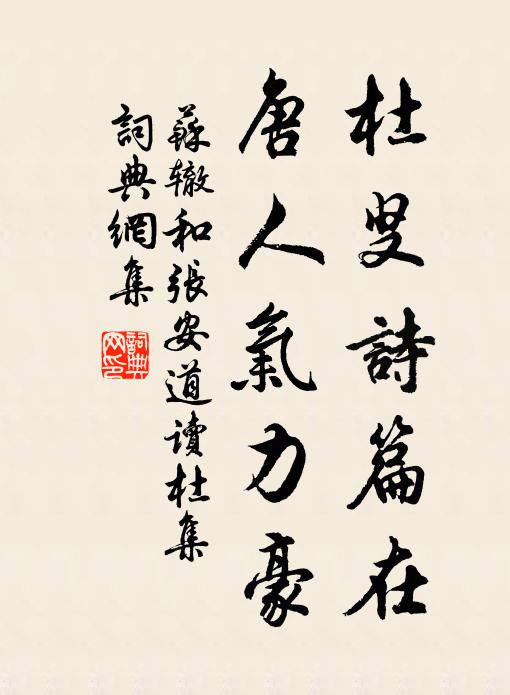 杜叟詩篇在
唐人氣力豪
蘇辙和張安道讀杜集
詞典網集
詞典
网印